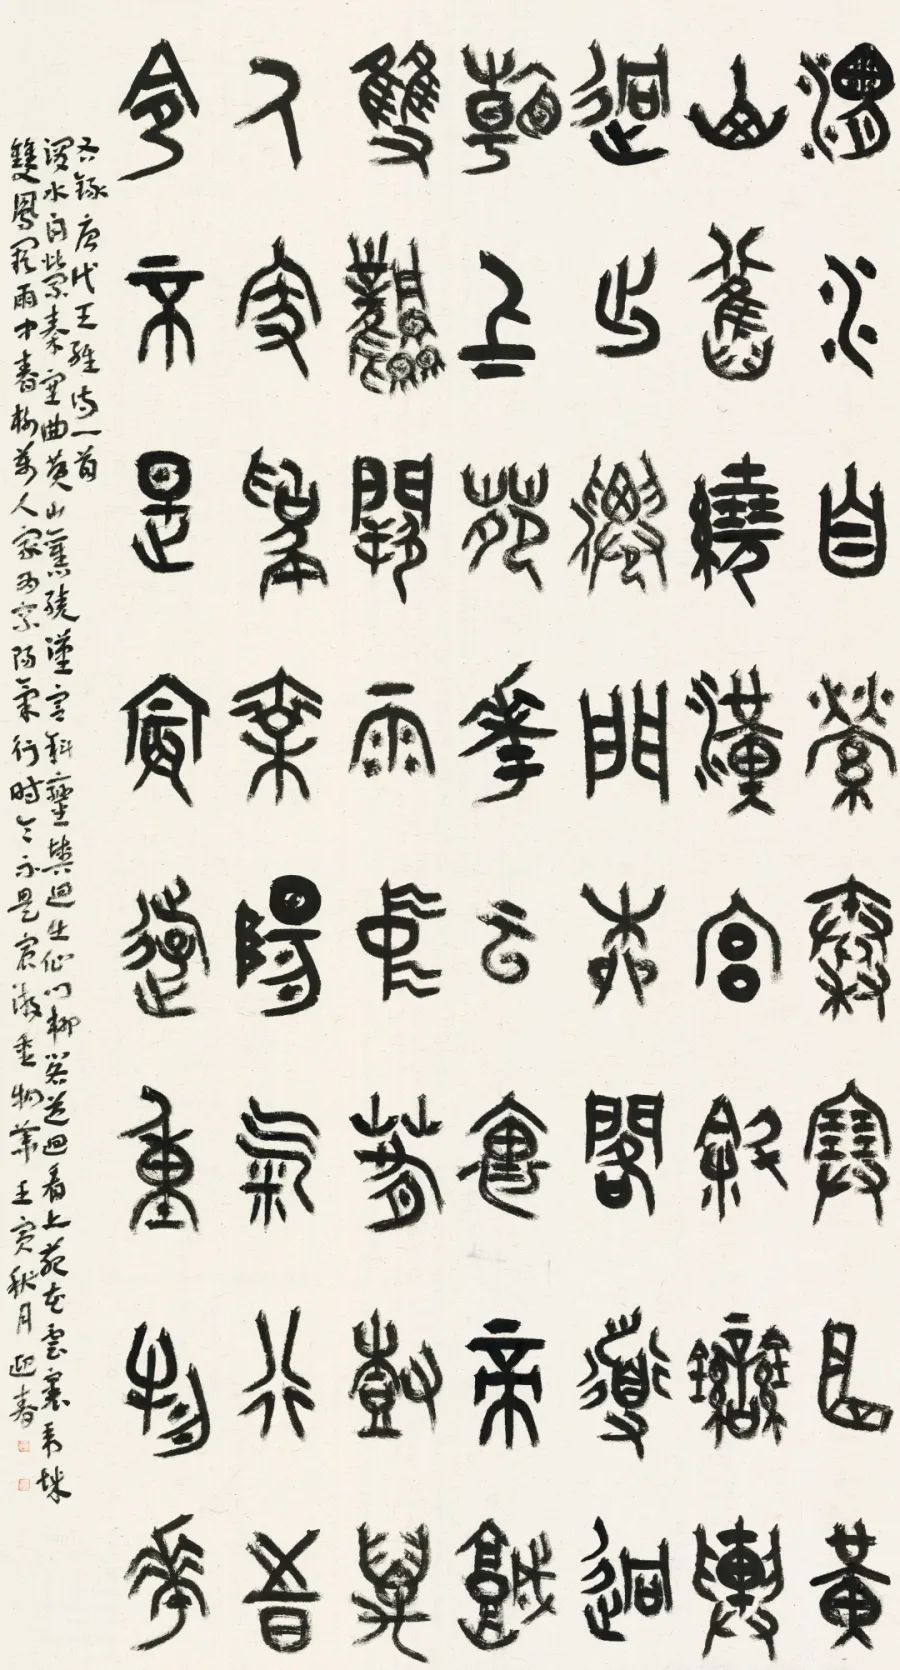 渭水自縈秦塞曲黃
山舊繞漢宮斜鑾輿
迥出僊門柳閣道迴
看上苑花雲裏帝城
雙鳳闕雨中春樹萬
人家為乘陽氣行時
令不是宸遊重物華
右錄唐代王維詩一首
渭水自縈秦塞曲黃山舊繞漢宮斜鑾輿迥出仙門柳閣道迴看上苑花雲裏帝城
雙鳳闕雨中春樹萬人家為乘陽氣行時令不是宸游重物華 壬寅秋月迎春